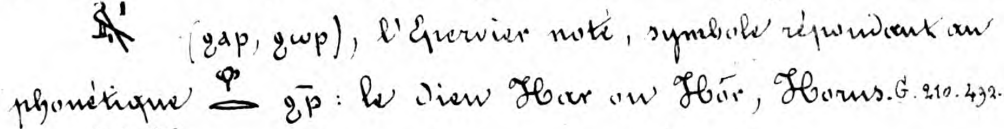 (ϩⲁⲣ, ϩⲱⲣ), l'Épervier noté, symbole répondant au
phonétique 𓁷𓂋 ϩⲣ̄ : le Dieu Har ou Hôr, Horus. G. 210. 432.